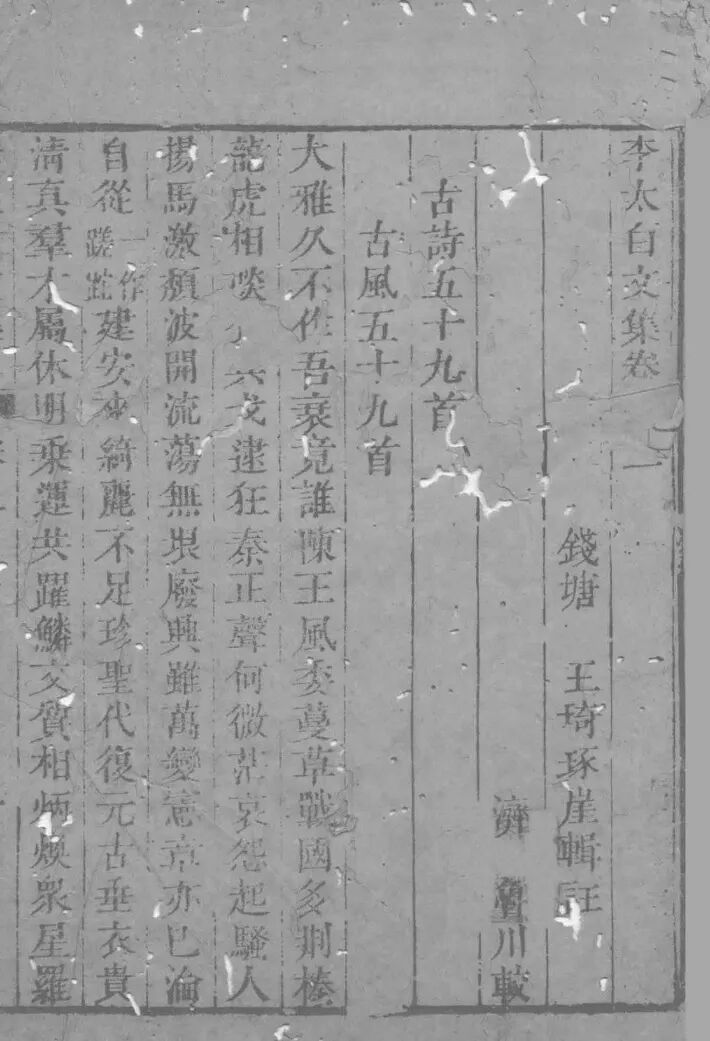 李太白文集卷一
錢塘 王琦琢崖輯註
濟川較
古詩五十九首
古風五十九首
大雅久不作吾衰竟誰陳王風委蔓草戰國多荆榛
龍虎相啖兵戈逮狂秦正聲何微茫哀怨起騷人
揚馬激頹波開流蕩無垠廢興雖萬變憲章亦已淪
自從一作蹉跎建安來綺麗不足珍聖代復元古垂衣貴
清真羣才屬休明乗運共躍鱗文質相炳煥衆星羅